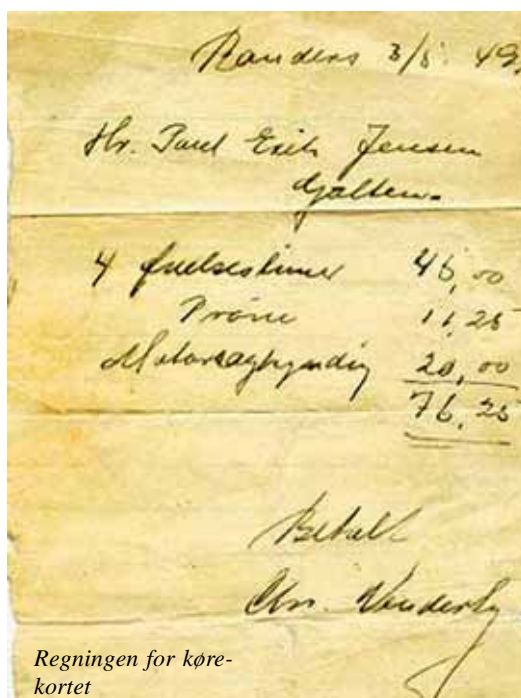 Randers 3/5. 49.
Hr. Poul Erik Jensen
Galten.
4 Øvelsestimer 45,00
Prøve 11,25
Motorsagkyndig 20,00
76,25
Betalt
Chr.
Regningen for køre-
kortet